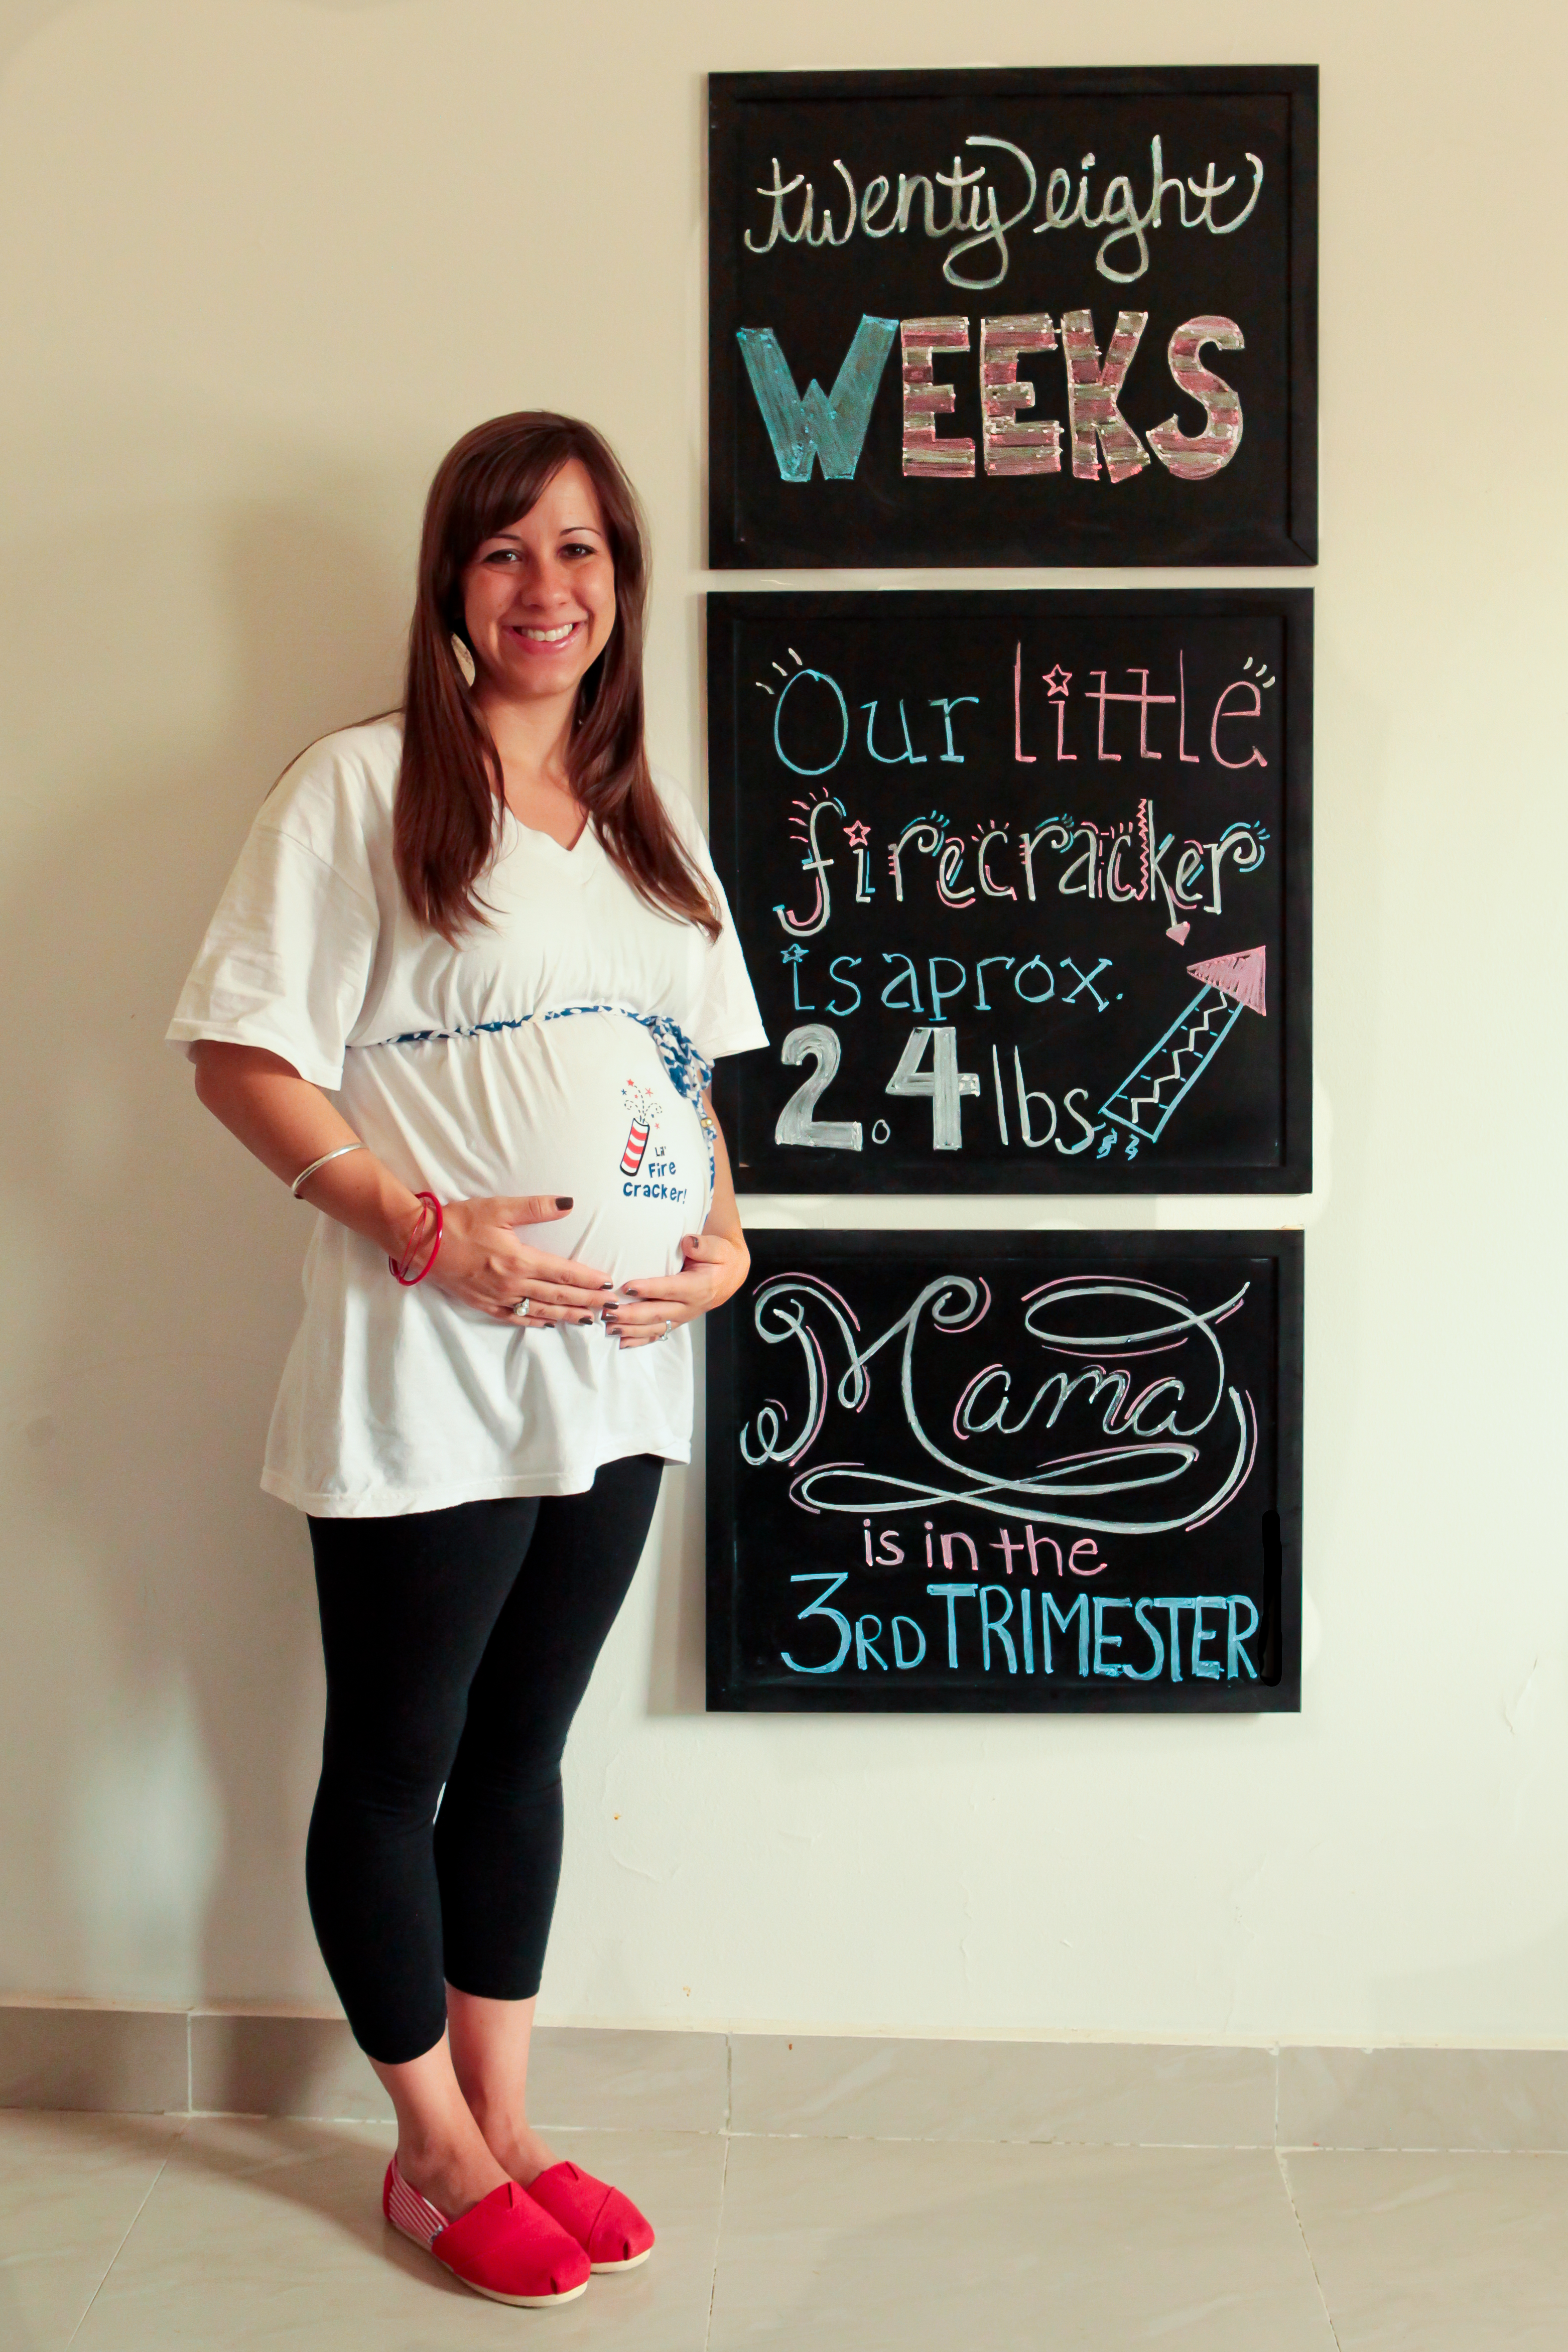 twenty eight
WEEKS
Our little
firecracker
is aprox.
2.4 lbs
Mama
is in the
3RD TRIMESTER
Lil'
Fire
cracker!